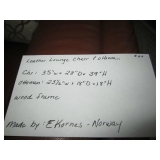 Leather Lounge Chair & Ottoman
Chr: 35"W x 29"D x 39"H
Ottoman: 23½"W x 18"D x 19"H
Wood Frame
Made by: EKornes - Norway